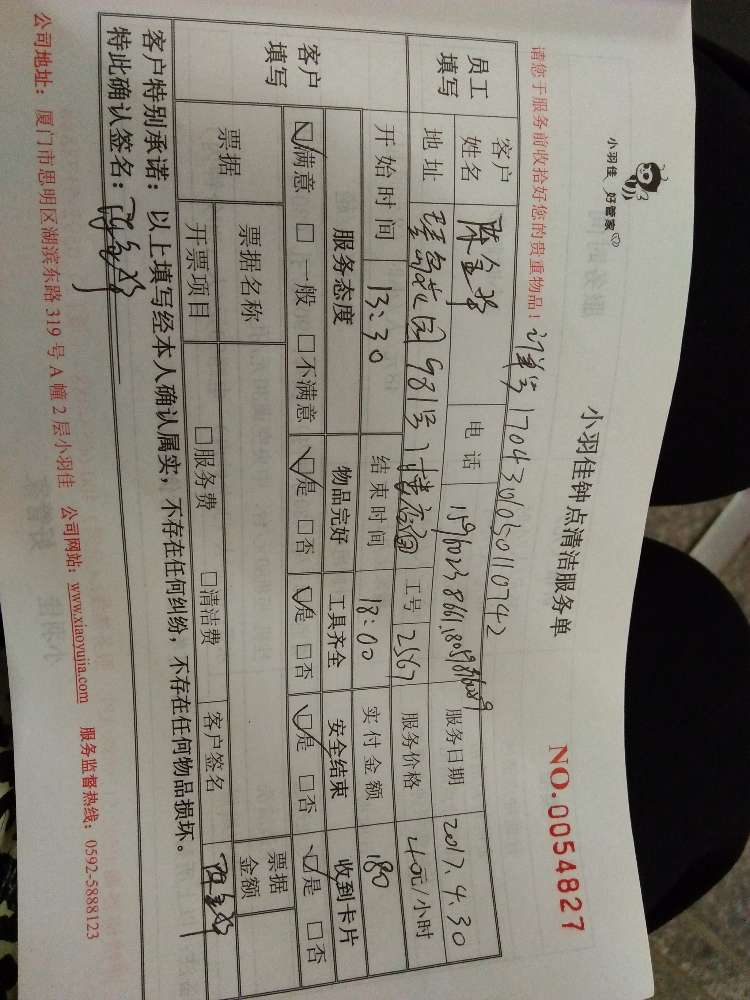 小羽佳 好管家
小羽佳钟点清洁服务单
NO.0054827
请您于服务前收拾好您的贵重物品! 订单号1704306050110742
员工填写 客户姓名 电话 服务日期 2017.4.30
地址 981号 工号 2567 服务价格 40元/小时
开始时间 13:30 结束时间 18:00 实付金额 180
客户填写 服务态度 物品完好 工具齐全 安全结束 收到卡片
☑满意 □一般 □不满意 ☑是 □否 ☑是 □否 ☑是 □否 ☑是 □否
票据 票据名称 票据金额
开票项目 □服务费 □清洁费 客户签名
客户特别承诺:以上填写经本人确认属实,不存在任何纠纷,不存在任何物品损坏。
特此确认签名:
公司地址:厦门市思明区湖滨东路319号A幢2层小羽佳 公司网站:www.xiaoyujia.com 服务监督热线:0592-5888123